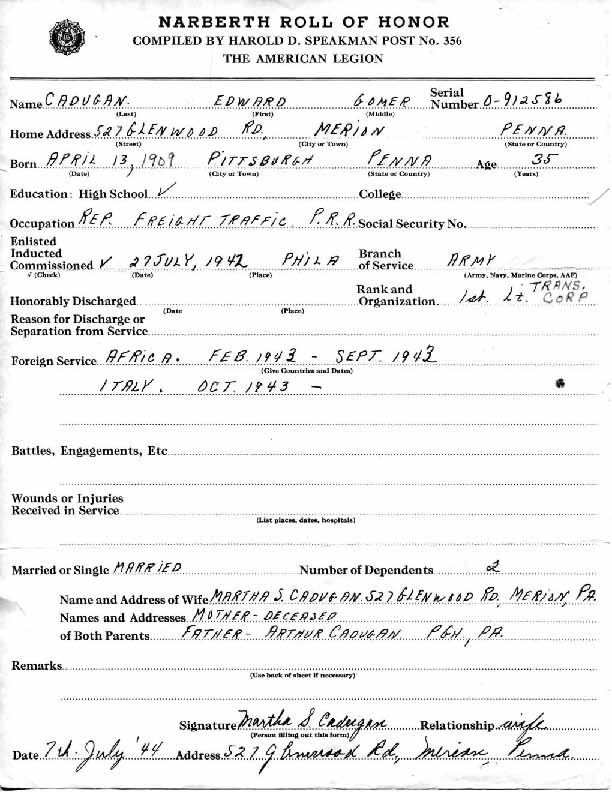 NARBERTH ROLL OF HONOR
COMPILED BY HAROLD D. SPEAKMAN POST No. 356
THE AMERICAN LEGION
Name CADUGAN. EDWARD GOMER Serial Number O-912586
(Last) (First) (Middle)
Home Address 527 GLENWOOD RD. MERION PENNA.
(Street) (City or Town) (State or Country)
Born APRIL 13, 1909 PITTSBURGH PENNA Age 35
(Date) (City or Town) (State or Country) (Years)
Education: High School ✓ College
Occupation REP. FREIGHT TRAFFIC. P.R.R. Social Security No.
Enlisted
Inducted
Commissioned ✓ 27 JULY, 1942 PHILA Branch of Service ARMY
√ (Check) (Date) (Place) (Army, Navy, Marine Corps, AAF)
Honorably Discharged Rank and Organization 1st. Lt. TRANS. CORP
(Date (Place)
Reason for Discharge or
Separation from Service
Foreign Service AFRICA. FEB. 1943 - SEPT. 1943
(Give Countries and Dates)
ITALY. OCT. 1943 -
Battles, Engagements, Etc
Wounds or Injuries
Received in Service
(List places, dates, hospitals)
Married or Single MARRIED Number of Dependents 2
Name and Address of Wife MARTHA S. CADUGAN. 527 GLENWOOD RD, MERION, PA.
Names and Addresses MOTHER - DECEASED
of Both Parents FATHER - ARTHUR CADUGAN PGH, PA.
Remarks
(Use back of sheet if necessary)
Signature Martha S. Cadugan Relationship wife
(Person filling out this form)
Date 7th July '44 Address 527 Glenwood Rd, Merion, Penna